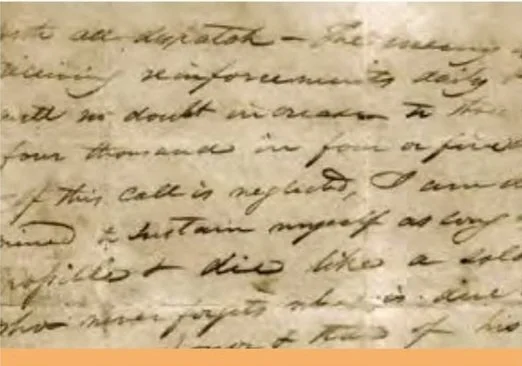 with all dispatch — The enemy
receiving reinforcements daily &
will no doubt increase to three
four thousand in four or five
If this call is neglected, I am
mined to sustain myself as long
possible & die like a sold
who never forgets what is due
honor & that of his